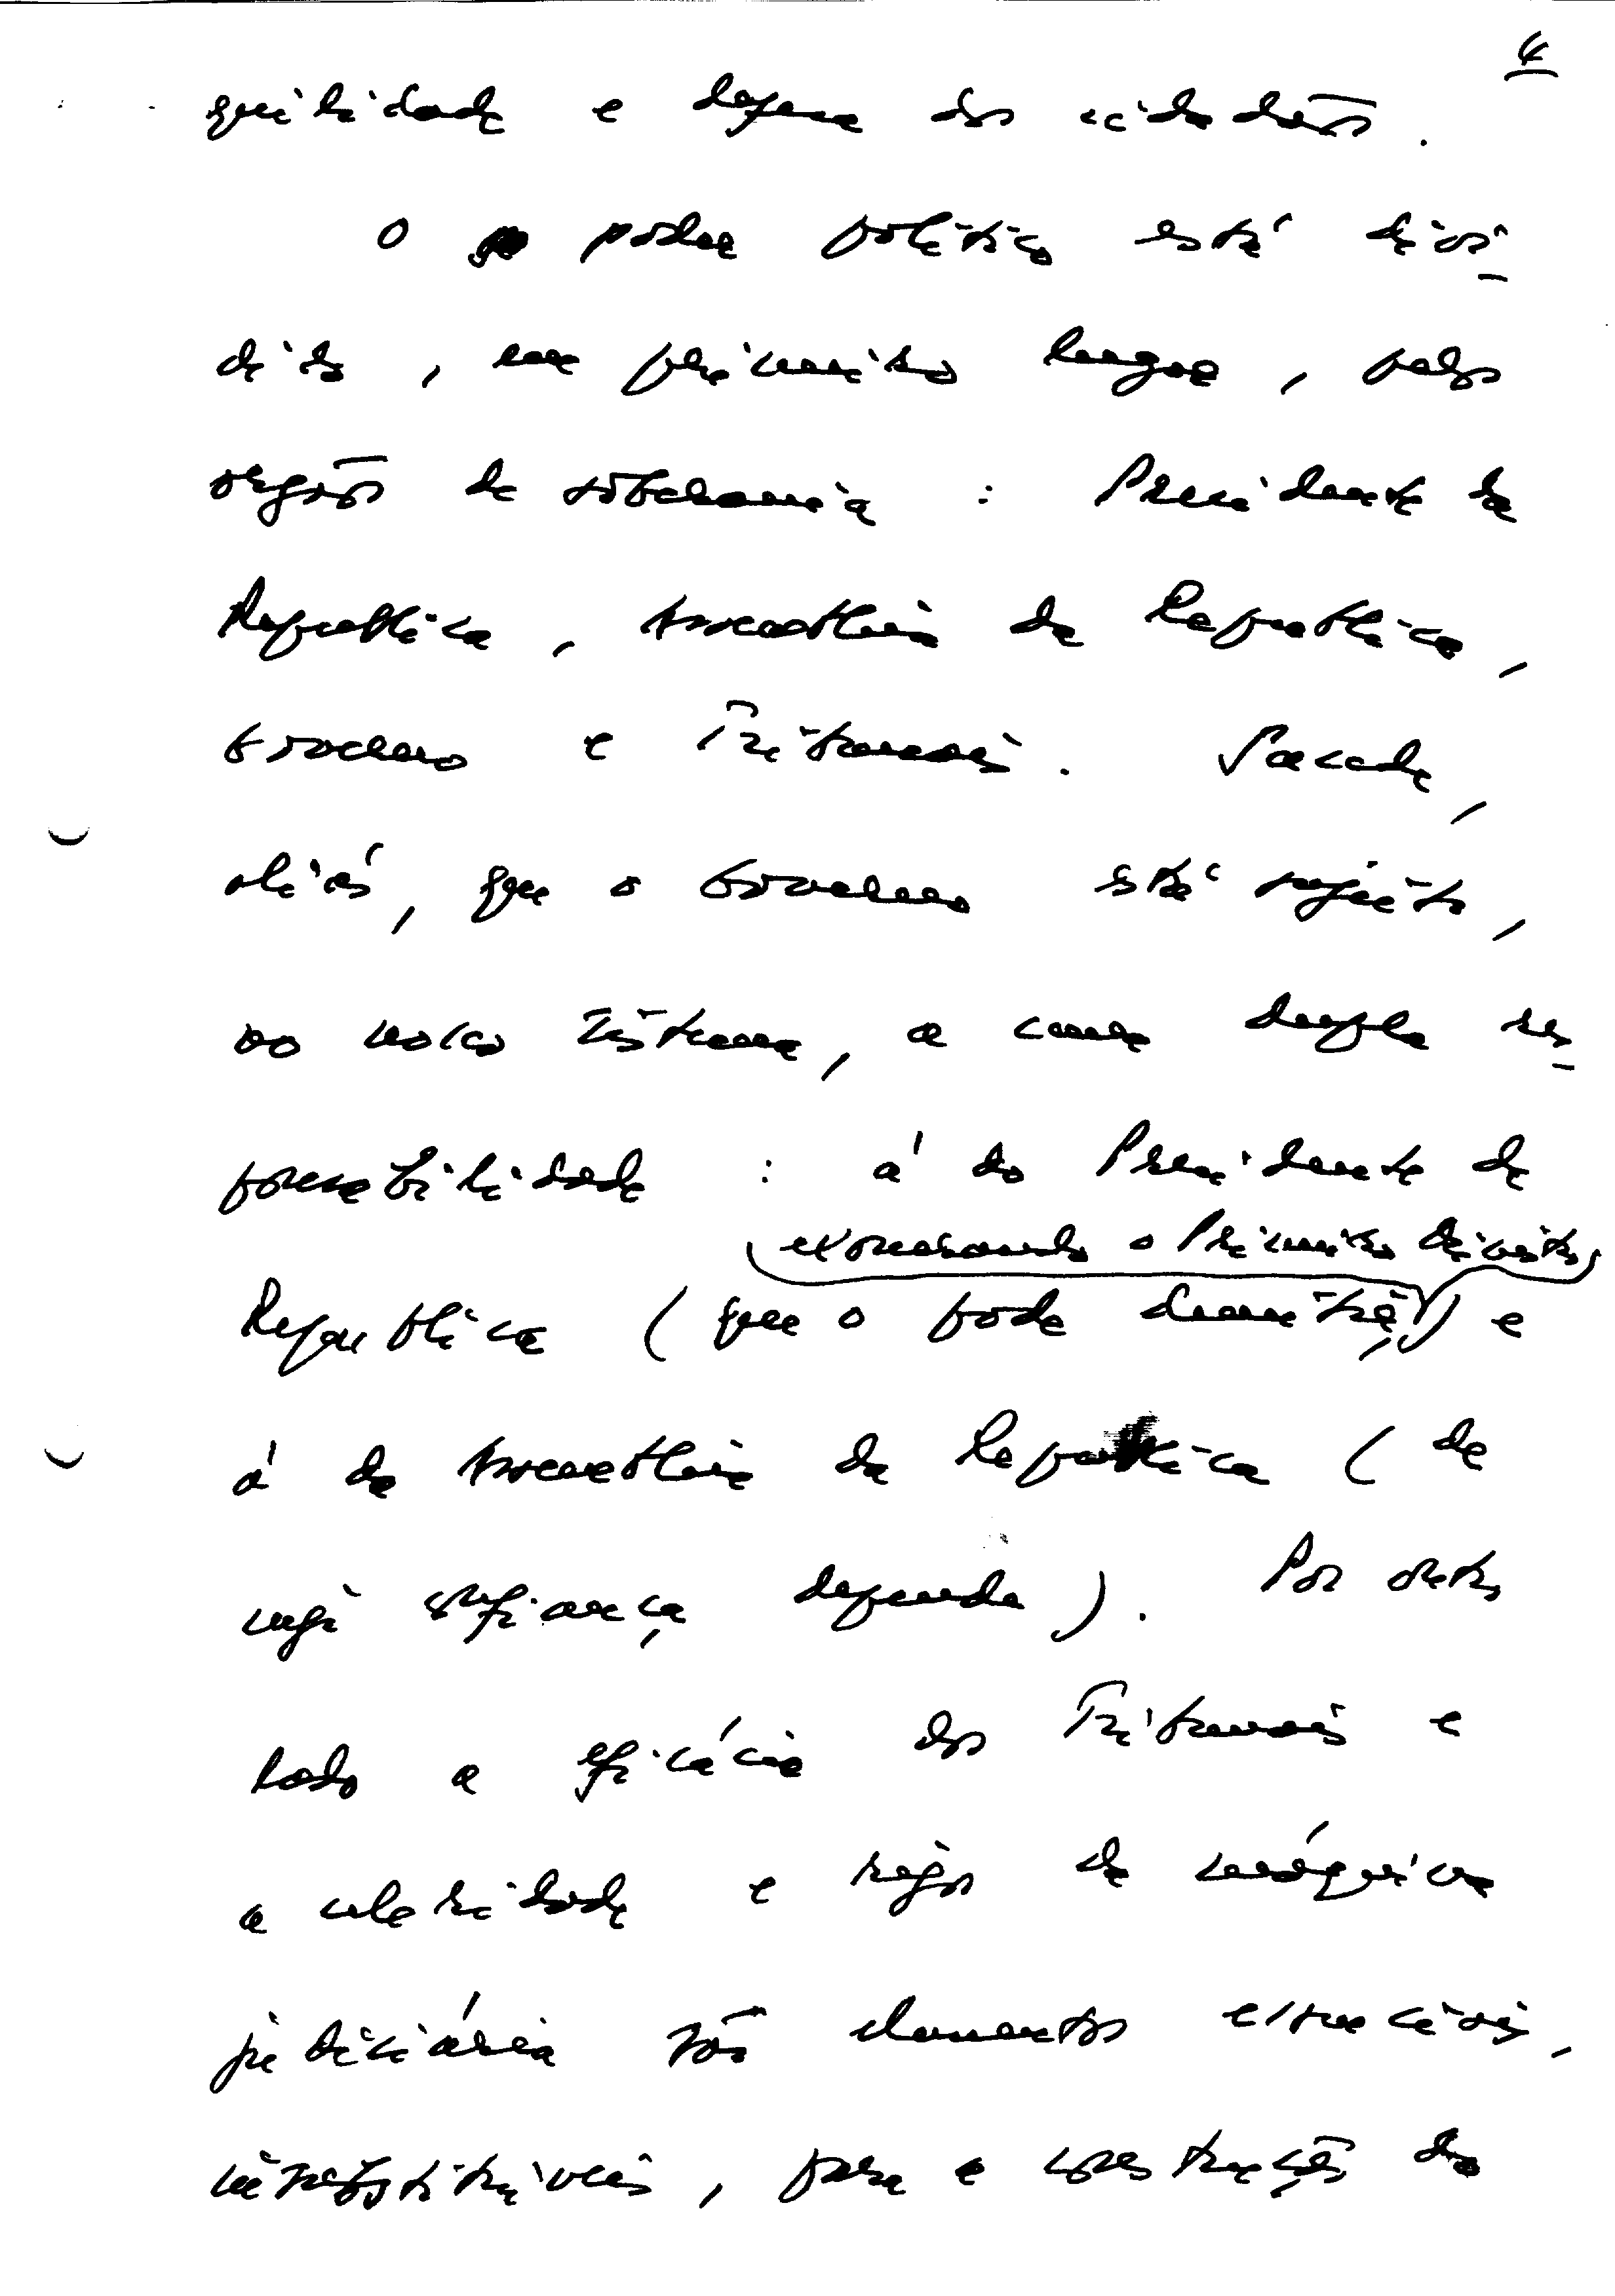 4
quilidade e defesa dos cidadãos.
O poder político está divi-
dido, em primeiro lugar, pelos
orgãos de soberania : Presidente da
Republica, Assembleia da Republica,
Governo e Tribunais. Sucede,
aliás, que o Governo está sujeito,
no nosso sistema, a uma dupla res-
ponsabilidade : á do Presidente da
exonerando o Primeiro Ministro
Republica (que o pode demitir,) e
á da Assembleia da Republica (de
cuja confiança depende). Por outro
lado a eficácia dos Tribunais e
a celeridade e rigor da máquina
judiciária são elementos essenciais,
insubstituiveis, para a construção do